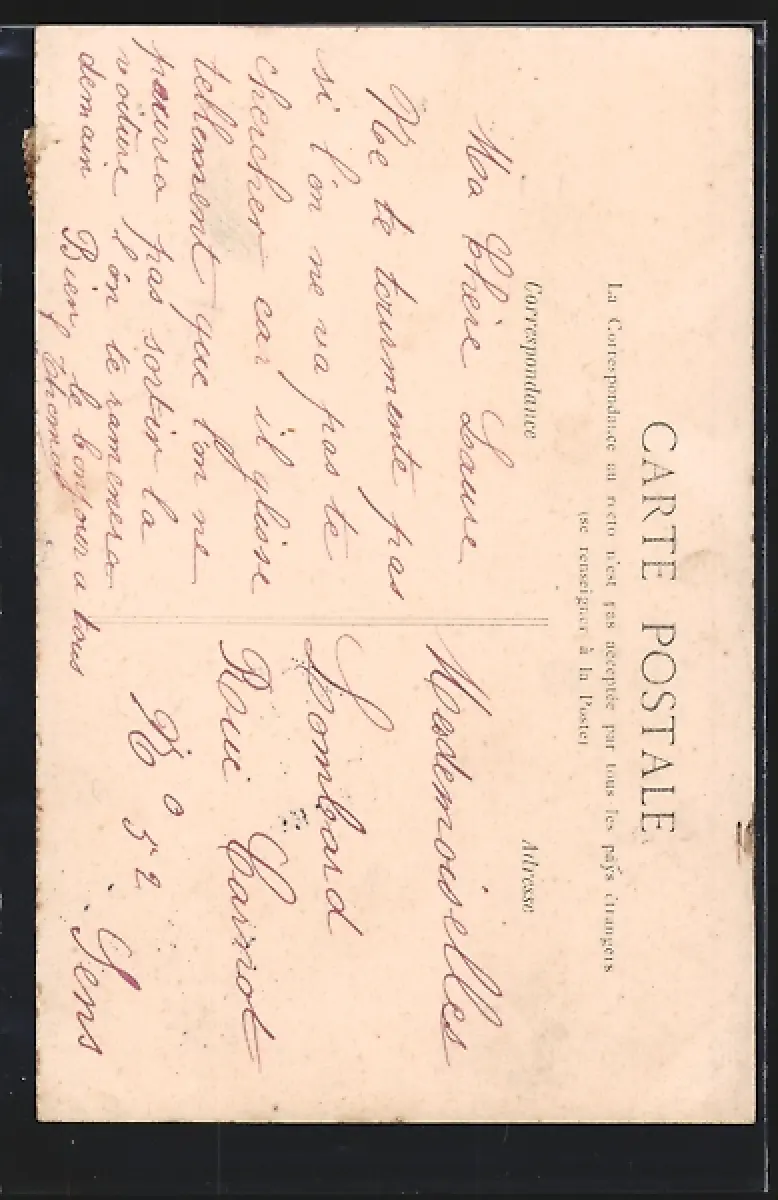 CARTE POSTALE
La Correspondance au recto n'est pas acceptée par tous les pays étrangers
(se renseigner à la Poste)
Correspondance
Ma Chère Laure
Ne te tourmente pas
si l'on ne va pas te
chercher car il glisse
tellement que l'on ne
pourra pas sortir la
voiture l'on te ramenera
demain Bien le bonjour a tous
Adresse
Mademoiselles
Lombard
Rue Carnot
No 52
Sens